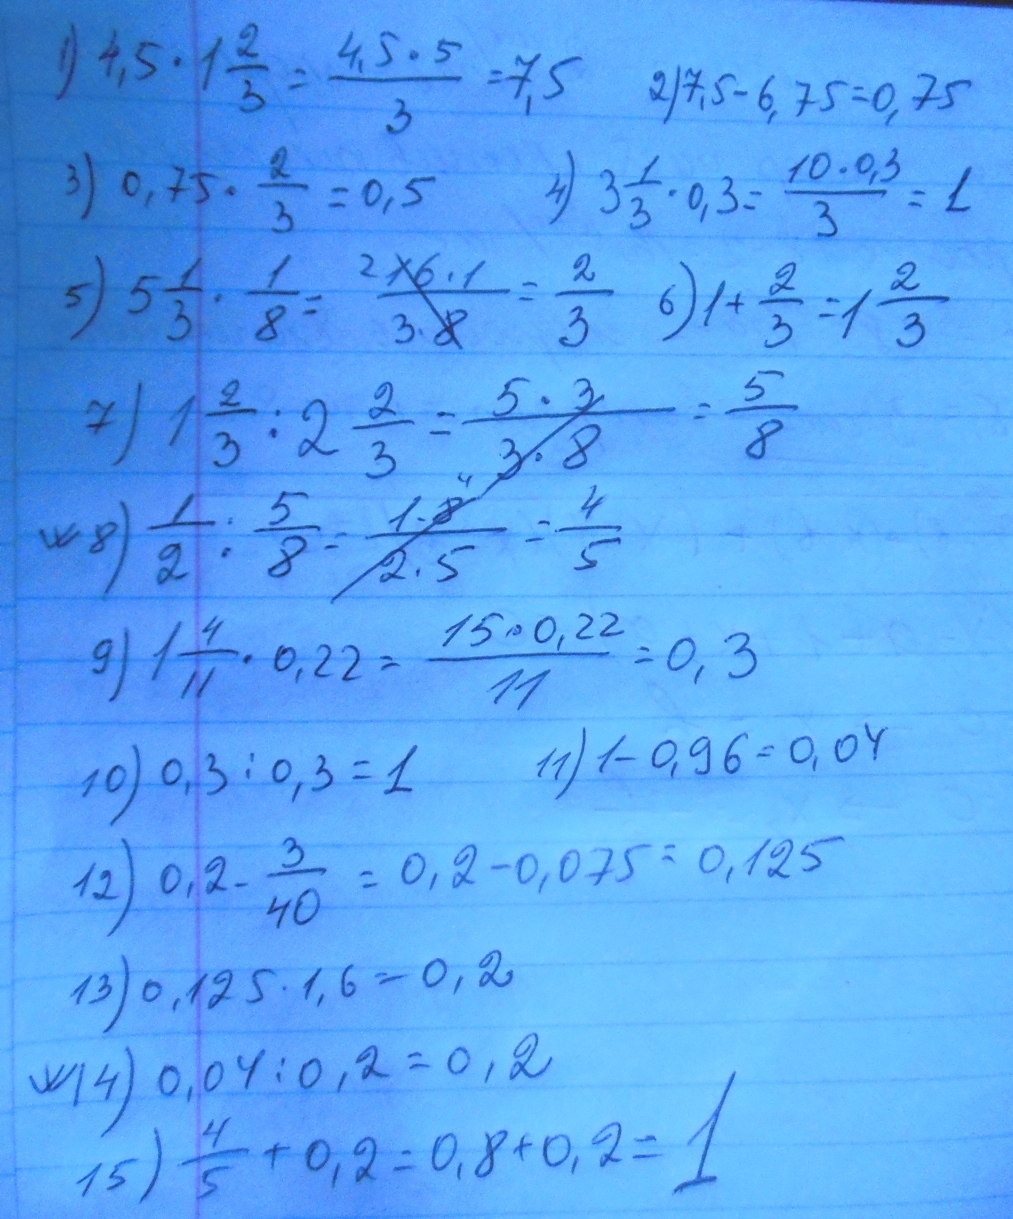 1) 4,5 · 1 2/3 = 4,5 · 5/3 = 7,5 2) 7,5 - 6,75 = 0,75
3) 0,75 · 2/3 = 0,5 4) 3 1/3 · 0,3 = 10 · 0,3/3 = 1
5) 5 1/3 · 1/8 = 2 16 · 1/3 · 8 = 2/3 6) 1 + 2/3 = 1 2/3
7) 1 2/3 : 2 2/3 = 5 · 3/3 · 8 = 5/8
w 8) 1/2 : 5/8 = 1 · 8 4/2 · 5 = 4/5
9) 1 4/11 · 0,22 = 15 · 0,22/11 = 0,3
10) 0,3 : 0,3 = 1 11) 1 - 0,96 = 0,04
12) 0,2 - 3/40 = 0,2 - 0,075 = 0,125
13) 0,125 · 1,6 = 0,2
w 14) 0,04 : 0,2 = 0,2
15) 4/5 + 0,2 = 0,8 + 0,2 = 1